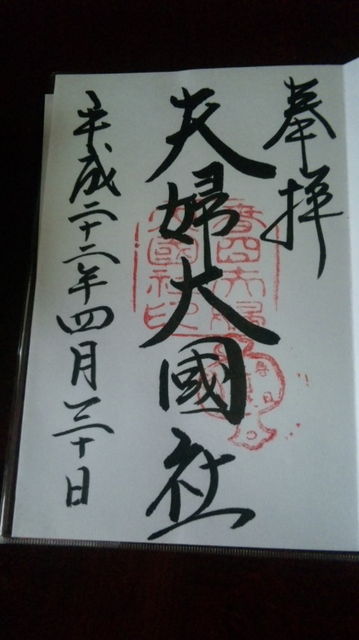 奉拝
夫婦大國社
平成二十二年四月三十日